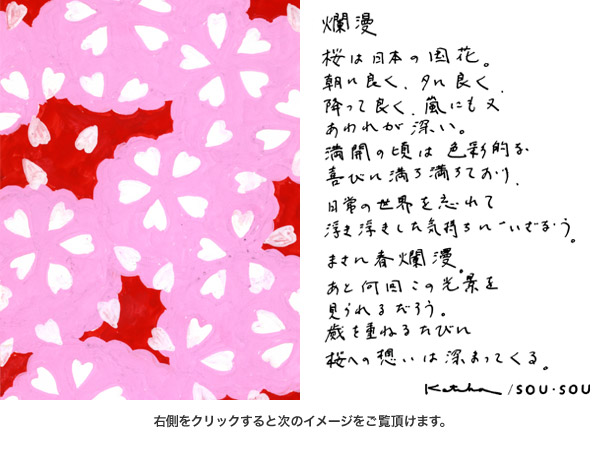 爛漫
桜は日本の国花。
朝に良く、夕に良く、
降って良く、風にも又
あわれが深い。
満開の頃は色彩的な
喜びに満ち満ちており、
日常の世界を忘れて
浮き浮きした気持ちにいざなう。
まさに春爛漫。
あと何回この光景を
見られるだろう。
歳を重ねるたびに
桜への想いは深まってくる。
/SOU・SOU
右側をクリックすると次のイメージをご覧頂けます。